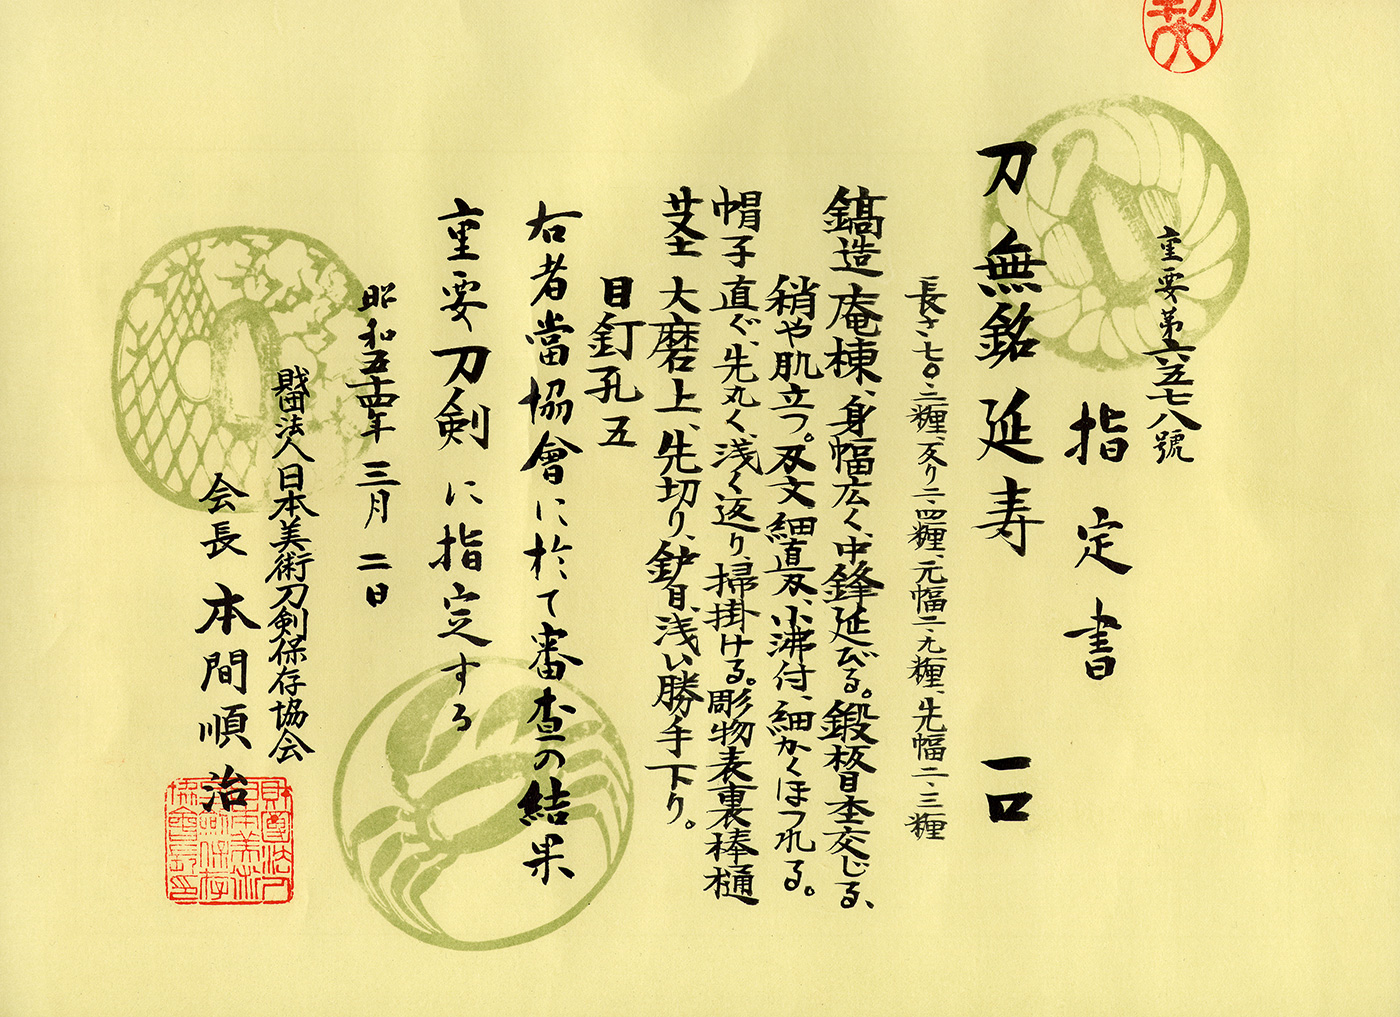 重要第六五七八號
指定書
刀 無銘 延寿 一口
長さ七〇・二糎、反り二・四糎、元幅二・九糎、先幅二・三糎
鎬造、庵棟、身幅広く、中鋒延びる。鍛板目杢交じる、
稍や肌立つ。刃文細直刃、小沸付、細かくほつれる。
帽子直ぐ、先丸く、浅く返り、掃掛ける。彫物表裏棒樋
茎 大磨上、先切り、鈩目、浅い勝手下り。
目釘孔五
右者當協會に於て審査の結果
重要刀剣に指定する
昭和五十四年三月二日
財団法人日本美術刀剣保存協会
会長 本間順治